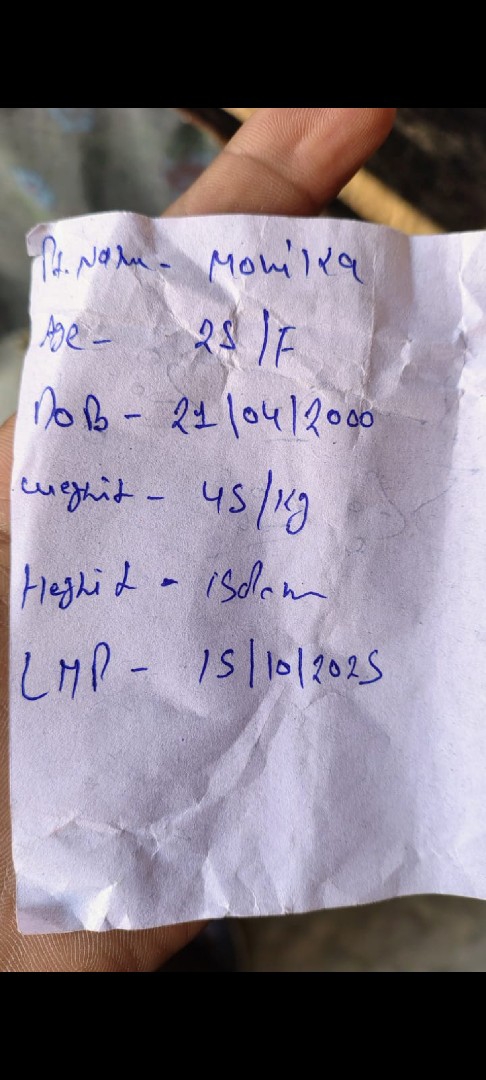 Pt. Name - Monika
Age - 25/F
DOB - 21/04/2000
weghit - 45/kg
Heghit -
LMP - 15/10/2025